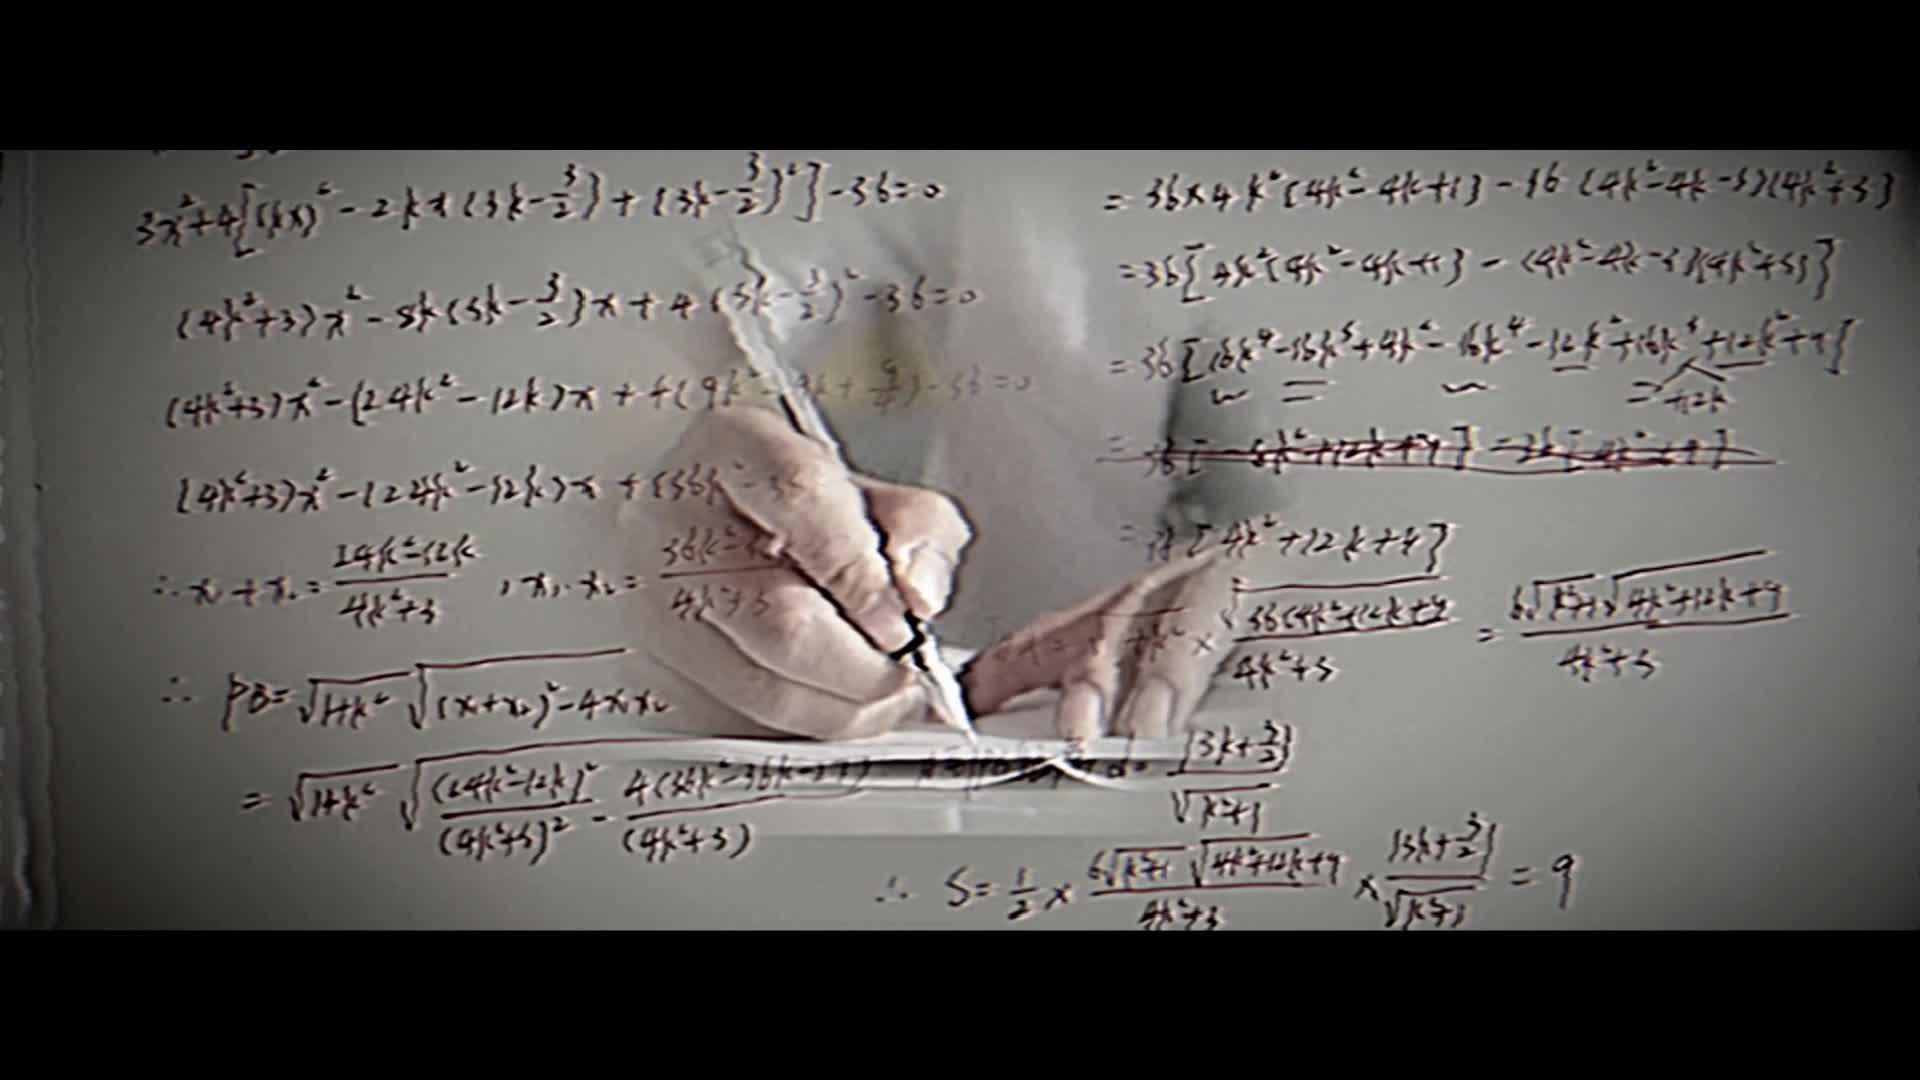 3x²+4[(kx)²-2kx(3k-3/2)+(3k-3/2)²]-36=0
(4k²+3)x²-8k(3k-3/2)x+4(3k-3/2)²-36=0
(4k²+3)x²-(24k²-12k)x+4(9k²-9k+9/4)-36=0
(4k²+3)x²-(24k²-12k)x+(36k²-36
∴x₁+x₂=(24k²-12k)/(4k²+3), x₁·x₂=(36k²-)/(4k²+3)
∴ PB=√(1+k²)√((x₁+x₂)²-4x₁x₂)
=√(1+k²)√((24k²-12k)²/(4k²+3)²-4(36k²-36k-27)/(4k²+3))
=36×4k²(4k²-4k+1)-36(4k²-4k-3)(4k²+3)
=36[4k²(4k²-4k+1)-(4k²-4k-3)(4k²+3)]
=36[16k⁴-16k³+4k²-16k⁴-12k²+16k³+12k²+9]
+12k
=36[4k²+12k+9]
√(1+k²)×√(36(4k²+12k+9))/(4k²+3)=6√(k²+1)√(4k²+12k+9)/(4k²+3)
d=|3k+3/2|/√(k²+1)
∴ S=1/2×6√(k²+1)√(4k²+12k+9)/(4k²+3)×|3k+3/2|/√(k²+1)=9